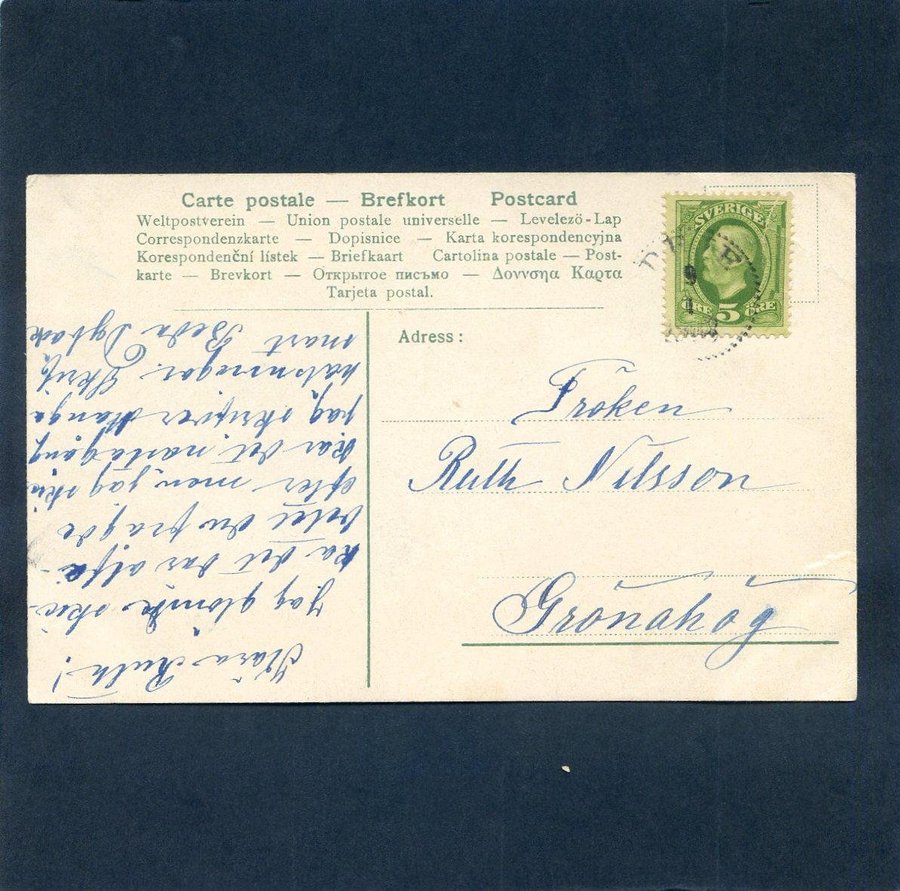 Carte postale — Brefkort Postcard
Weltpostverein — Union postale universelle — Levelező-Lap
Correspondenzkarte — Dopisnice — Karta korespondencyjna
Korespondenční lístek — Briefkaart Cartolina postale — Post-
karte — Brevkort — Открытое письмо — Δοννσηα Καρτα
Tarjeta postal.
SVERIGE
ÖRE 5 ÖRE
9
1
Adress:
Fröken
Ruth Nilsson
Grönahög
Kära Ruth!
Jag glömde skic-
ka det var alfa-
betet du fragde
efter men jag skic
kar det nästa gång
jag skrifver Många
hälsningar. Skrif
snart Beda Dybäck